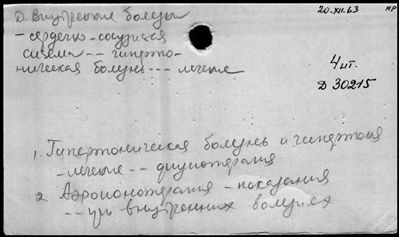 Д. Внутренние болезни
20.XII.63
МР
- сердечно-сосудистая
система -- гиперто-
ническая болезнь --- лечение
4 шт.
Д 30215
1. Гипертоническая болезнь и гипертония
- лечение -- физиотерапия
2. Аэроионотерапия - показания
-- при внутренних болезнях